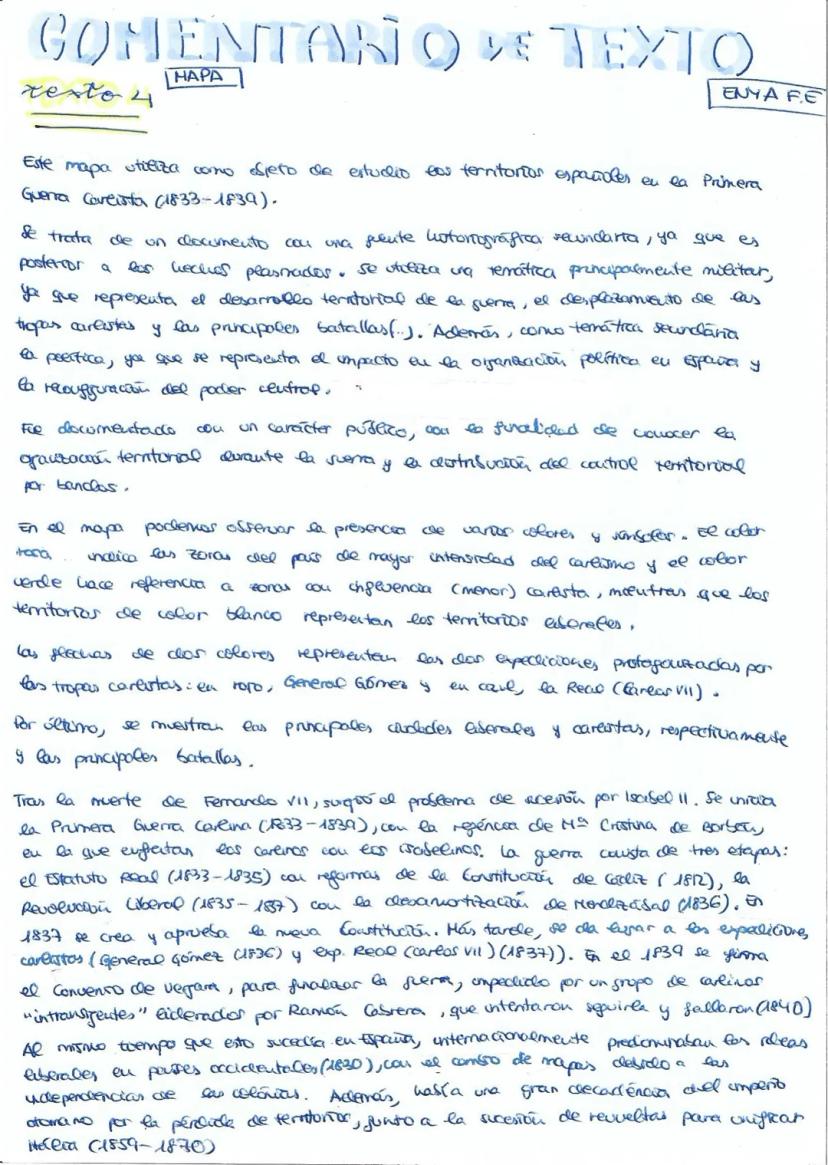 COMENTARIO DE TEXTO
MAPA
texto 4
ENYA F.E
Este mapa utiliza como objeto de estudio los territorios españoles en la Primera
Guerra Carlista (1833-1839).
Se trata de un documento con una fuente historiográfica secundaria, ya que es
posterior a los hechos plasmados. Se utiliza una temática principalmente militar,
ya que representa el desarrollo territorial de la guerra, el desplazamiento de las
tropas carlistas y las principales batallas(..). Además, como temática secundária
la política, ya que se representa el impacto en la organización política en España y
la reconfiguración del poder central.
Fue documentado con un carácter público, con la finalidad de conocer la
organización territorial durante la guerra y la distribución del control territorial
por bandos.
En el mapa podemos observar la presencia de varios colores y símbolos. El color
rosa indica las zonas del país de mayor intensidad del carlismo y el color
verde hace referencia a zonas con influencia (menor) carlista, mientras que los
territorios de color blanco representan los territorios liberales.
Las flechas de dos colores representan las dos expediciones protagonizadas por
las tropas carlistas: en rojo, General Gómez y en azul, la Real (Carlos VII).
Por último, se muestran las principales ciudades liberales y carlistas, respectivamente
y las principales batallas.
Tras la muerte de Fernando VII, surgió el problema de acesión por Isabel II. Se inicia
la Primera Guerra Carlina (1833-1839), con la regéncia de Mª Cristina de Borbón,
en la que enfrentan los carlinos con los isabelinos. La guerra consta de tres etapas:
el Estatuto Real (1833-1835) con reformas de la Constitución de Cádiz (1812), la
Revolución Liberal (1835-1837) con la desamortización de Mendizábal (1836). En
1837 se crea y aprueba la nueva Constitución. Más tarde, se da lugar a las expediciones
carlistas (General Gómez (1836) y exp. Real (Carlos VII) (1837)). En el 1839 se firma
el Convenio de Vergara, para finalizar la guerra, impedido por un grupo de carlinos
"intransigentes" liderados por Ramón Cabrera, que intentaron seguirla y fallaron (1840)
Al mismo tiempo que esto sucedía en España, internacionalmente predominaban las ideas
liberales en países occidentales (1830), con el cambio de mapas debido a las
independencias de las colónias. Además, había una gran decadéncia del imperio
otomano por la pérdida de territorios, junto a la sucesión de revueltas para unificar
Itália (1859-1870)